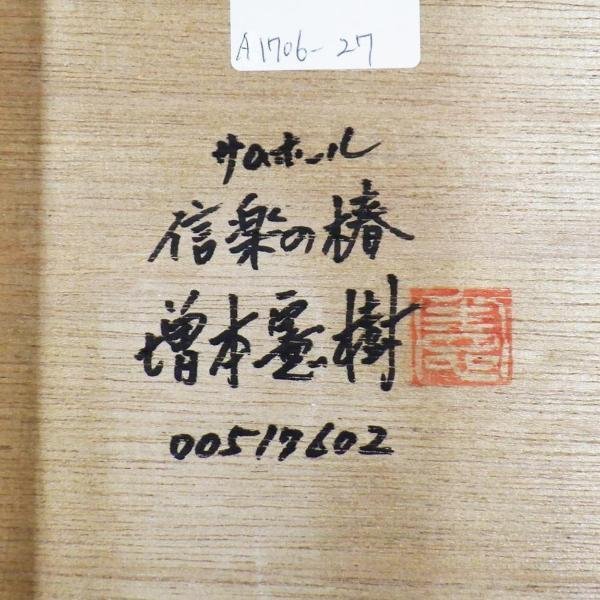 A1706-27
サムホール
信楽の椿
増本憲樹
00517602